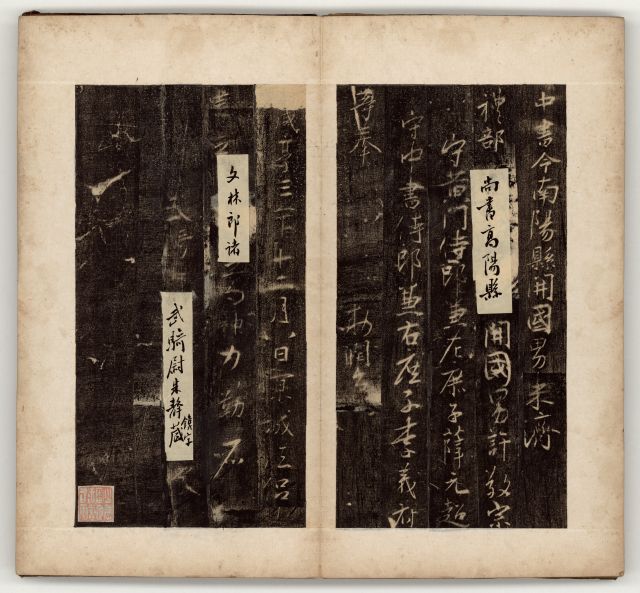 中書令南陽縣開國男来濟
禮部尚書高陽縣開國男許敬宗
守黃門侍郎兼左庶子薛元超
守中書侍郎兼右庶子李義府
等奉 勑潤
咸亨三年十二月 日京城法侶
文林郎諸 神力勒石
武騎尉朱靜藏鐫字